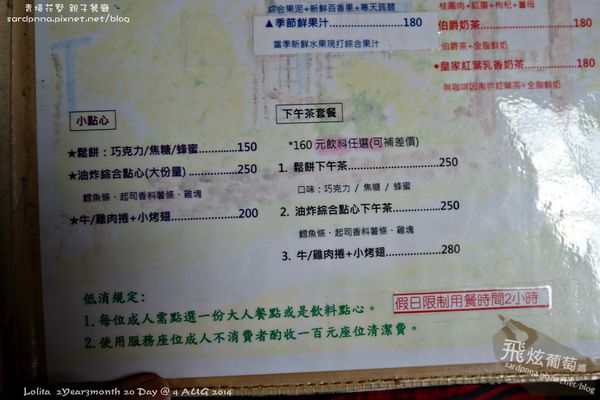 青檀花墅 親子餐廳
sardpnna.pixnet.net/blog
綜合果泥+新鮮百香果+寒天蒟蒻
▲季節鮮果汁 180
當季新鮮水果現打綜合果汁
桂圓肉+紅棗+枸杞+薑母
伯爵奶茶 180
伯爵茶+全脂鮮奶
◆皇家紅葉乳香奶茶 180
無咖啡因南非紅葉茶+全脂鮮奶
小點心
★鬆餅：巧克力/焦糖/蜂蜜 150
★油炸綜合點心(大份量) 250
鱈魚條、起司香料薯條、雞塊
★牛/雞肉捲+小烤翅 200
下午茶套餐
*160 元飲料任選(可補差價)
1. 鬆餅下午茶 250
口味：巧克力 / 焦糖 / 蜂蜜
2. 油炸綜合點心下午茶 250
鱈魚條、起司香料薯條、雞塊
3. 牛/雞肉捲+小烤翅 280
低消規定：
1. 每位成人需點選一份大人餐點或是飲料點心。
2. 使用服務座位成人不消費者酌收一百元座位清潔費。
假日限制用餐時間2小時
飛炫葡萄媽
sardpnna.pixnet.net/blog
Lolita 2Year3month 20 Day @ 4 AUG 2014